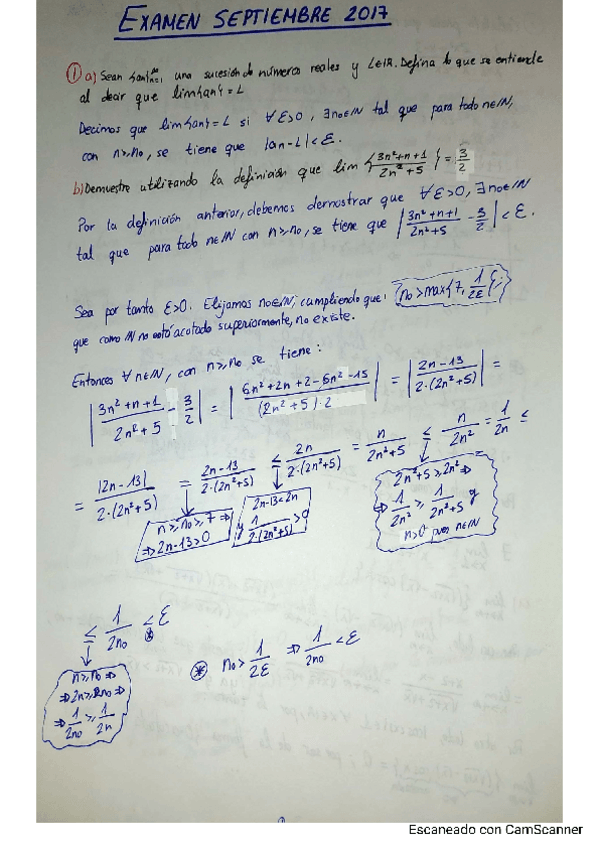 EXAMEN SEPTIEMBRE 2017
① a) Sean {an}∞n=1 una sucesión de números reales y L∈IR. Defina lo que se entiende
al decir que lim{an} = L
Decimos que lim{an} = L si ∀ε>0, ∃no∈IN tal que para todo n∈IN,
con n≥no, se tiene que |an-L|<ε.
b) Demuestre utilizando la definición que lim {(3n²+n+1)/(2n²+5)} = 3/2
Por la definición anterior, debemos demostrar que ∀ε>0, ∃no∈IN
tal que para todo n∈IN con n≥no, se tiene que |(3n²+n+1)/(2n²+5) - 3/2| < ε.
Sea por tanto ε>0. Elijamos no∈IN, cumpliendo que, no>max{7, 1/2ε},
que como IN no está acotado superiormente, no existe.
Entonces ∀n∈IN, con n≥no se tiene:
|(3n²+n+1)/(2n²+5) - 3/2| = |(6n²+2n+2-6n²-15)/((2n²+5)·2)| = |(2n-13)/(2·(2n²+5))| =
= |2n-13|/(2·(2n²+5)) = (2n-13)/(2·(2n²+5)) ≤ 2n/(2·(2n²+5)) = n/(2n²+5) ≤ n/2n² = 1/2n ≤
n≥no≥7 ⇒
⇒ 2n-13>0
2n-13<2n
y 1/(2·(2n²+5)) >0
2n²+5≥2n² ⇒
⇒ 1/2n² ≥ 1/(2n²+5) y
n>0 pues n∈IN
≤ 1/2no < ε
⊛
⊛ no > 1/2ε ⇒ 1/2no < ε
n≥no ⇒
⇒ 2n≥2no ⇒
⇒ 1/2no ≥ 1/2n
Escaneado con CamScanner